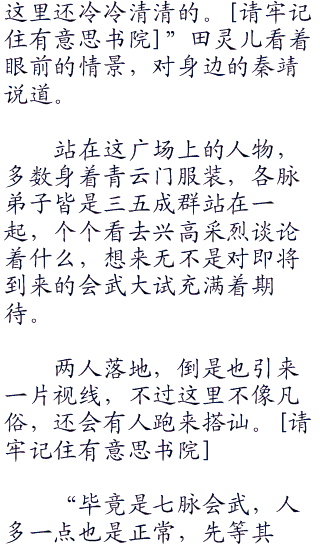 这里还冷冷清清的。[请牢记
住有意思书院]”田灵儿看着
眼前的情景，对身边的秦靖
说道。
站在这广场上的人物，
多数身着青云门服装，各脉
弟子皆是三五成群站在一
起，个个看去兴高采烈谈论
着什么，想来无不是对即将
到来的会武大试充满着期
待。
两人落地，倒是也引来
一片视线，不过这里不像凡
俗，还会有人跑来搭讪。[请
牢记住有意思书院]
“毕竟是七脉会武，人
多一点也是正常，先等其